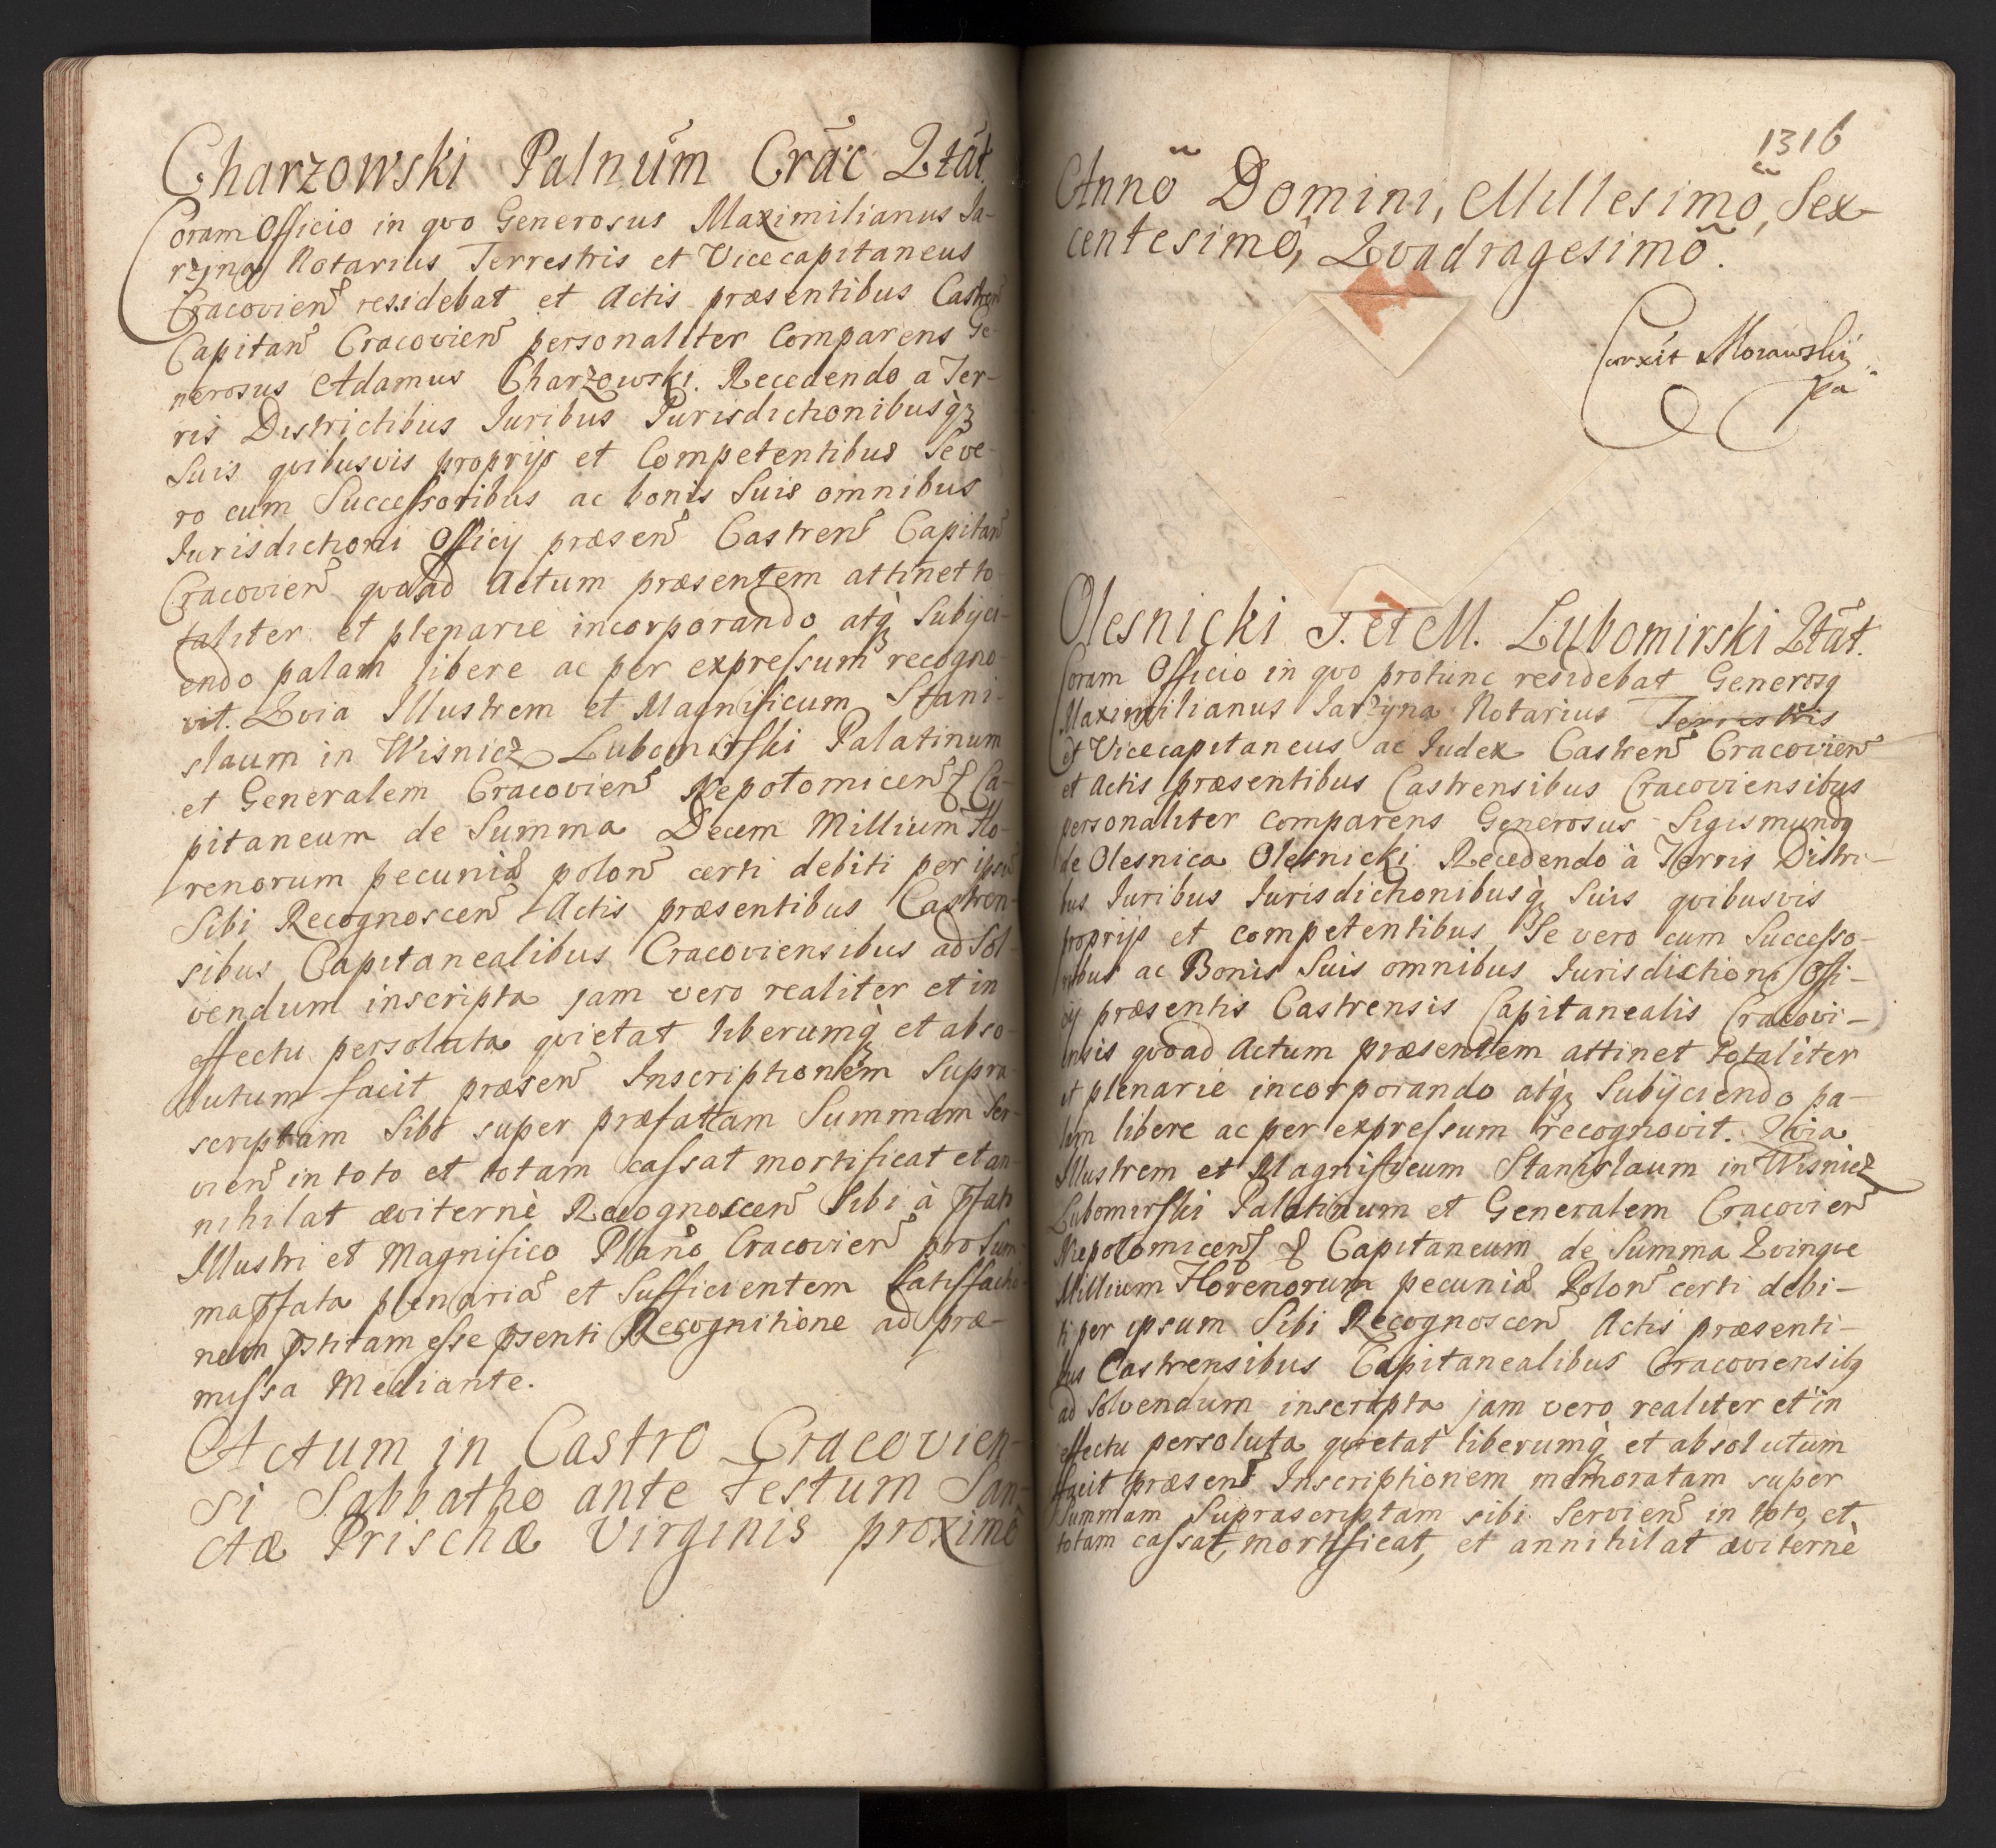 Charzowski Palnum̃ Crãc Qtãt.
Coram Officio in qvo Generosus Maximilianus Ja-
rzina Notarius Terrestris et Vicecapitaneus
Cracovien̄ residebat et Actis præsentibus Castren̄
Capitan̄ Cracovien̄ personaliter Comparens Ge-
nerosus Adamus Charzowski. Recedendo a Ter-
ris Districtibus Juribus Jurisdictionibusq̀ȝ
Suis qvibusvis proprijs et Competentibus Seve-
ro cum Successoribus ac bonis Suis omnibus
Jurisdictioni Officij præsen̄ Castren̄ Capitan̄
Cracovien̄ qvoad Actum præsentem attinet to-
taliter et plenarie incorporando atq̀ȝ Subijci-
endo palam libere ac per expressum recogno-
vit. Qvia Illustrem et Magnificum Stani-
slaum in Wisnicz Lubomirski Palatinum
et Generalem Cracovien̄ Nepotomicen̄ & Ca-
pitaneum de Summa Decem Millium Flo-
renorum pecuniæ polon̄ certi debiti per ipsū
Sibi Recognoscen̄ Actis præsentibus Castren-
sibus Capitanealibus Cracoviensibus ad Sol-
vendum inscripta jam vero realiter et in
effectu persoluta qvietat liberumq̀ȝ et abso-
lutum facit præsen̄ Inscriptionem Supra-
scriptam Sibi super præfattam Summam Ser-
vien̄ in toto et totam cassat mortificat et an-
nihilat æviternè Recognoscen̄ Sibi à p̄fato
Illustri et Magnifico Pl̄ano Cracovien̄ pro Sum-
ma p̄fata plenariā et Sufficientem Satisfactio-
nem p̄stitam esse p̄senti Recognitione ad præ-
missa Mediante.
Actum in Castro Cracovien-
si Sabbatho ante Festum San-
ctæ Prischæ Virginis proximò
1316
Annõ Domini, Millesimõ, Sex-
centesimò, Qvadragesimõ.
Corxit Morawski
pa
Olesnicki J. et M. Lubomirski Qtãt.
Coram Officio in qvo protunc residebat Generosq
Maximilianus Jarzyna Notarius Terrestris
et Vicecapitaneus ac Judex Castren̄ Cracovien̄
et Actis præsentibus Castrensibus Cracoviensibus
personaliter Comparens Generosus Sigismundq
de Olesnica Olesnicki Recedendo à Terris Distri-
bus Juribus Jurisdictionibusq̀ȝ Suis qvibusvis
proprijs et competentibus, Se vero cum Successo-
ribus ac Bonis Suis omnibus Jurisdictioni Offi-
cij præsentis Castrensis Capitanealis Cracovi-
ensis qvoad Actum præsentem attinet totaliter
et plenarie incorporando atq̀ȝ Subijciendo pa-
lam libere ac per expressum recognovit. Qvia
Illustrem et Magnificum Stanislaum in Wisnicz
Lubomirski Palatinum et Generalem Cracovien̄
Niepolomicen̄ & Capitaneum de Summa Qvinqve
Millium Florenorum pecuniæ Polon̄ certi debi-
ti per ipsum Sibi Recognoscen̄ Actis præsenti-
bus Castrensibus Capitanealibus Cracoviensibq
ad Solvendum inscripta jam vero realiter et in
effectu persoluta qvietat liberumq̀ et absolutum
facit præsen̄ Inscriptionem memoratam super
Summam Suprascriptam sibi Servien̄ in toto, et
totam cassat, mortificat, et annihilat æviternè